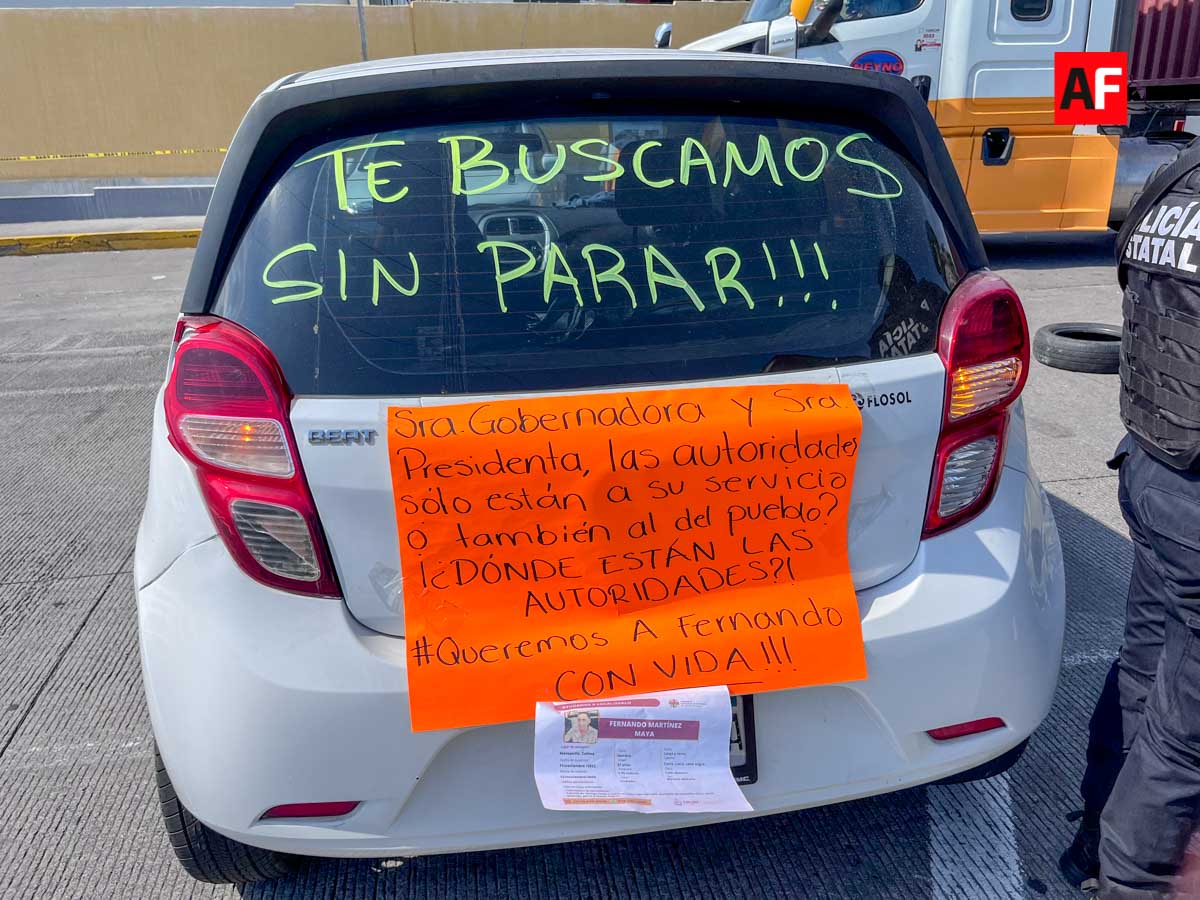 AF
HEYNO
TE BUSCAMOS
SIN PARAR!!!
LICÍA
STATAL
BEAT
FLOSOL
Sra. Gobernadora y Sra.
Presidenta, las autoridades
sólo están a su servicio
o también al del pueblo?
¡¿DÓNDE ESTÁN LAS
AUTORIDADES?!
#Queremos A Fernando
CON VIDA!!!
FERNANDO MARTÍNEZ
MAYA